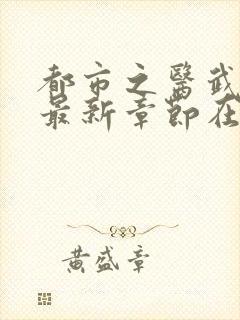 都市之醫武
最新章節在
黄盛章